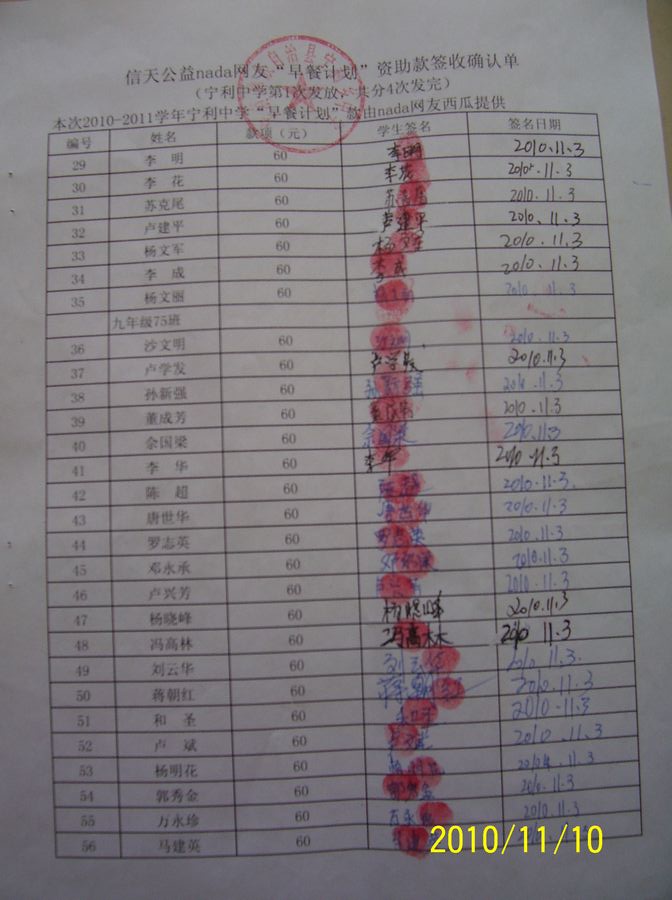 信天公益nada网友“早餐计划”资助款签收确认单
（宁利中学第1次发放，共分4次发完）
本次2010-2011学年宁利中学“早餐计划”款由nada网友西瓜提供
编号 姓名 款项（元） 学生签名 签名日期
29 李 明 60 李明 2010.11.3
30 李 花 60 李花 2010.11.3
31 苏克尾 60 苏克尾 2010.11.3
32 卢建平 60 卢建平 2010.11.3
33 杨文军 60 杨文军 2010.11.3
34 李 成 60 李成 2010.11.3
35 杨文丽 60 2010.11.3
九年级75班
36 沙文明 60 2010.11.3
37 卢学发 60 卢学发 2010.11.3
38 孙新强 60 孙新强 2010.11.3
39 董成芳 60 2010.11.3
40 余国梁 60 余国梁 2010.11.3
41 李 华 60 李华 2010.11.3
42 陈 超 60 2010.11.3
43 唐世华 60 唐世华 2010.11.3
44 罗志英 60 罗志英 2010.11.3
45 邓永承 60 邓永承 2010.11.3
46 卢兴芳 60 2010.11.3
47 杨晓峰 60 杨晓峰 2010.11.3
48 冯高林 60 冯高林 2010 11.3
49 刘云华 60 刘云华 2010.11.3
50 蒋朝红 60 蒋朝红 2010.11.3
51 和 圣 60 2010.11.3
52 卢 斌 60 2010.11.3
53 杨明花 60 2010.11.3
54 郭秀金 60 2010.11.3
55 万永珍 60 2010.11.3
56 马建英 60
2010/11/10